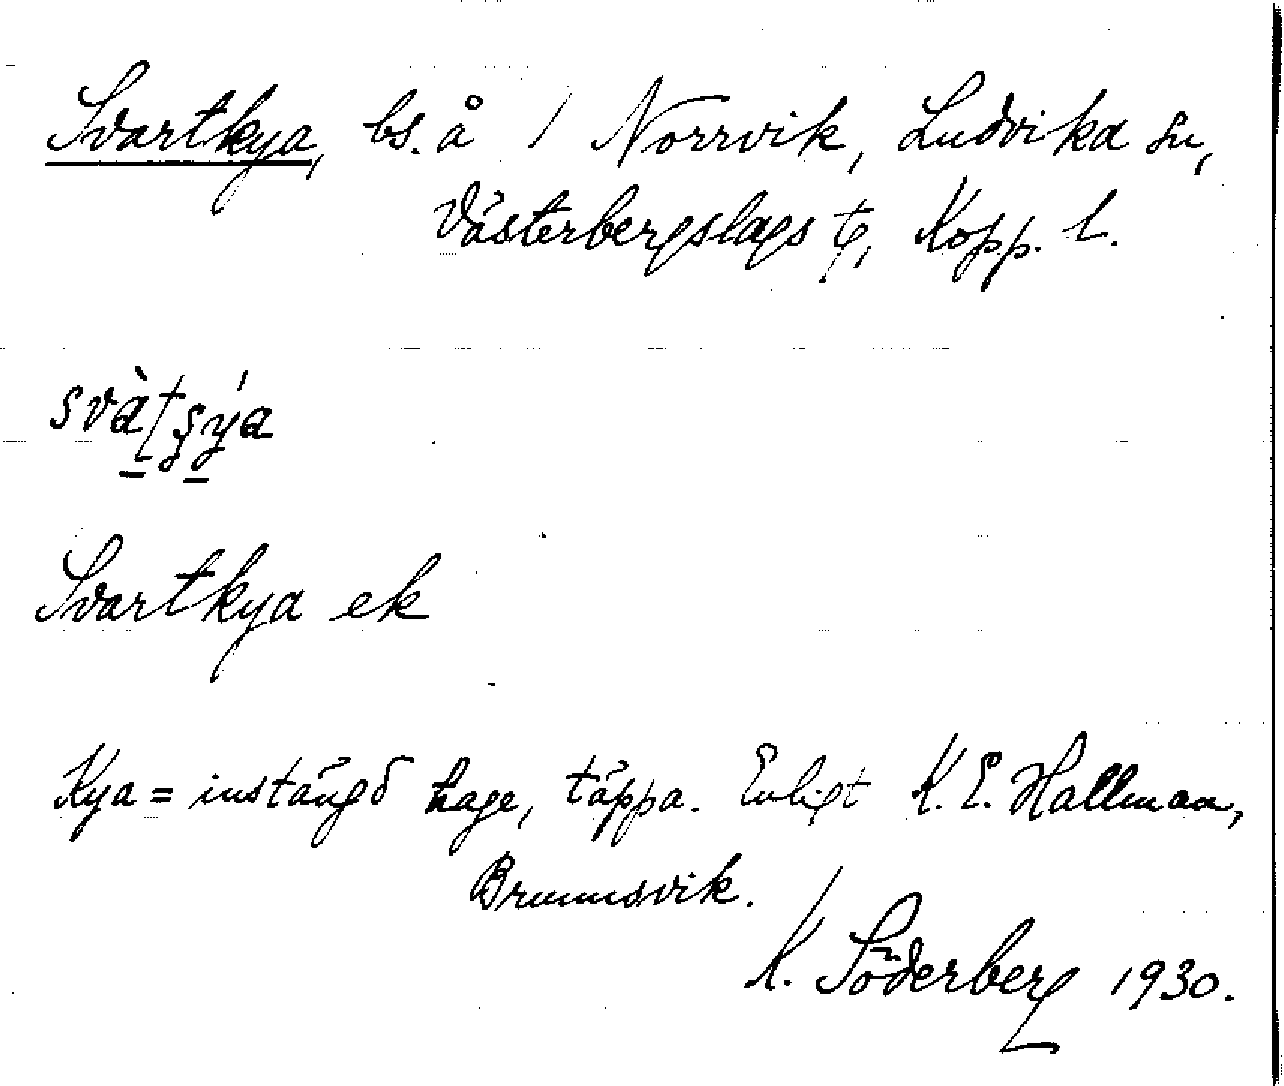 Svartkya, bs. å / Norrvik, Ludvika sn,
Västerbergslags tg, Kopp. l.
svàtʂýa
Svartkya ek
Kya = instängd hage, täppa. Enligt K. E. Hallman,
Brunnsvik.
K. Söderberg 1930.